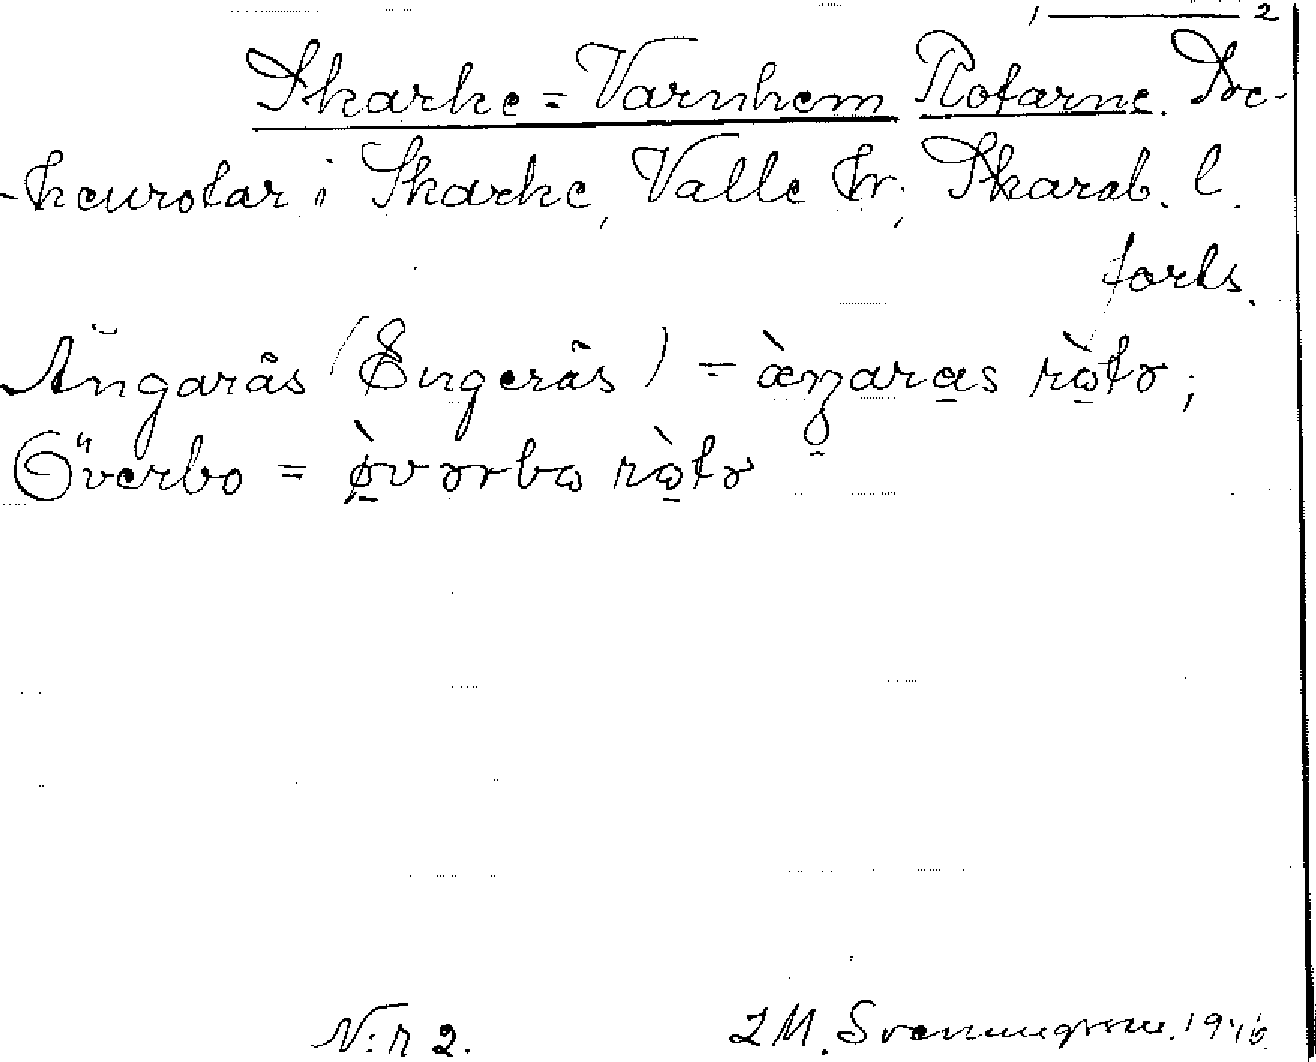 1 — 2
Skarke = Varnhem Rotarne. Soc-
kenrotar i Skarke, Valle hr; Skarab. l.
forts.
Ängarås (Engerås) = àŋaras ròtɘ;
Överbo = òvɘrbo ròtɘ
N:r 2. L M. Svenungsson. 1946